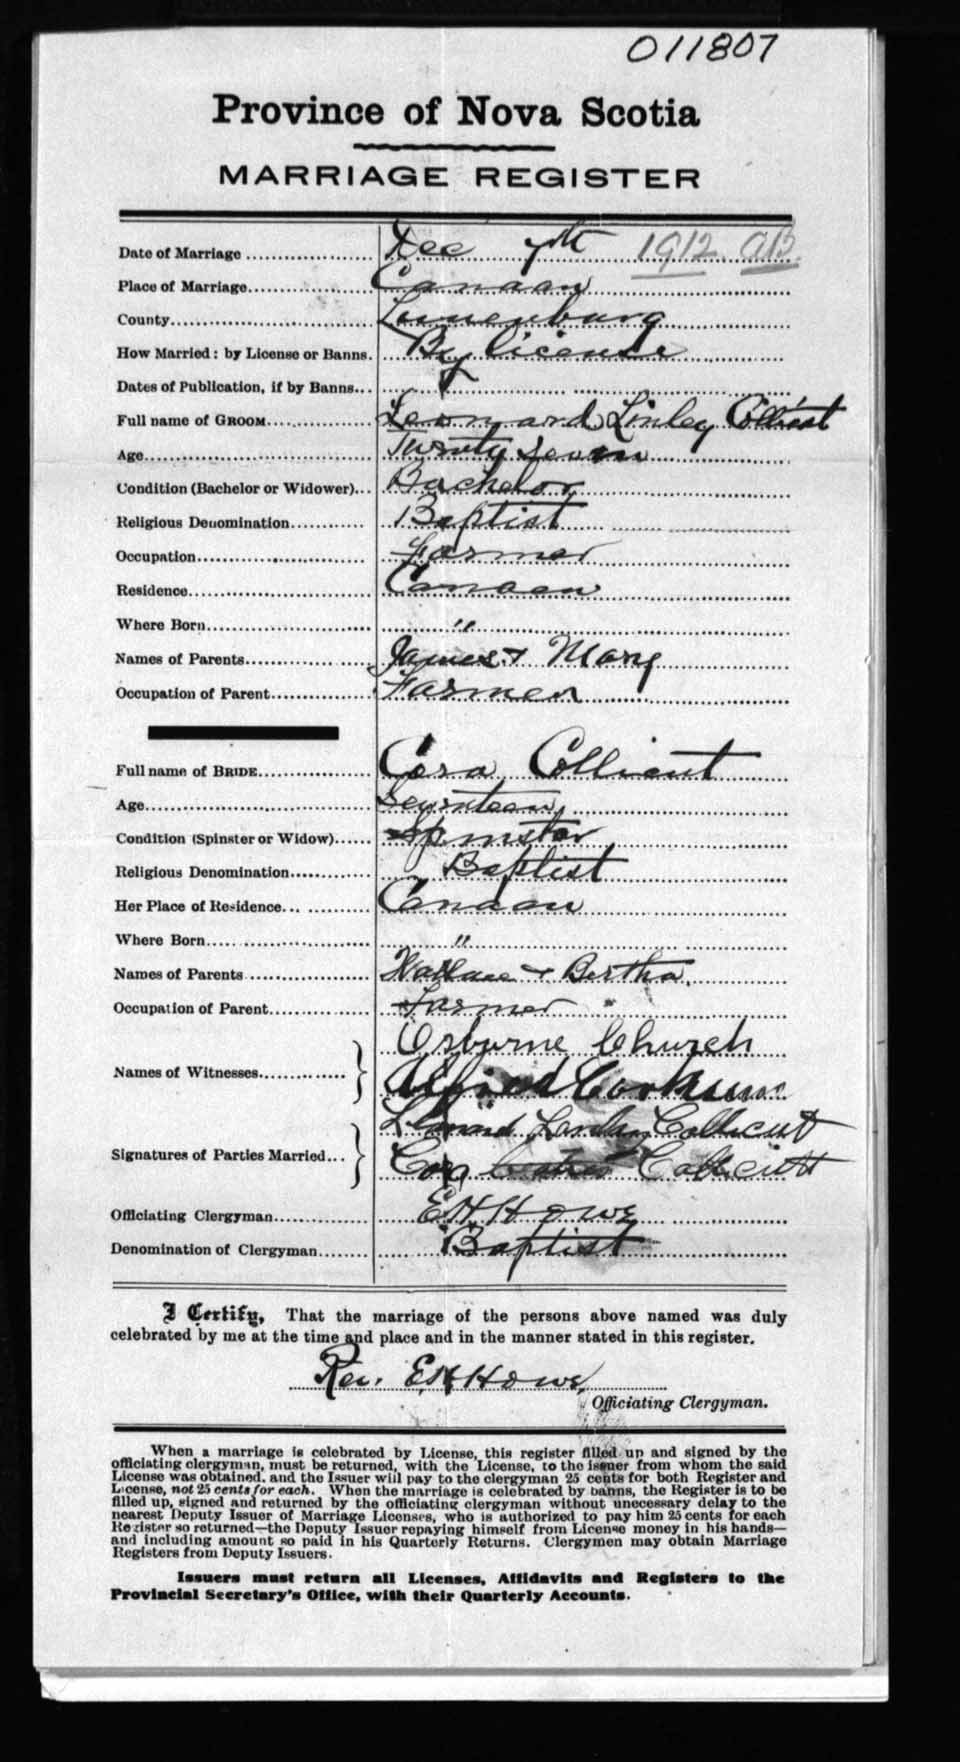 011807
Province of Nova Scotia
MARRIAGE REGISTER
Date of Marriage Dec 7th 1912. AB.
Place of Marriage Canaan
County Lunenburg
How Married: by License or Banns. By license
Dates of Publication, if by Banns
Full name of GROOM Leonard Linley Collicut
Age Twenty seven
Condition (Bachelor or Widower) Bachelor
Religious Denomination Baptist
Occupation Farmer
Residence Canaan
Where Born "
Names of Parents James + Mary
Occupation of Parent Farmer
Full name of BRIDE Cora Collicut
Age Seventeen
Condition (Spinster or Widow) Spinster
Religious Denomination Baptist
Her Place of Residence Canaan
Where Born "
Names of Parents Wallace + Bertha
Occupation of Parent Farmer
Osburne Church
Names of Witnesses
Alfred Corkum
Leonard Collicutt
Signatures of Parties Married
Cora Collicutt
Officiating Clergyman E H Howe
Denomination of Clergyman Baptist
I Certify, That the marriage of the persons above named was duly
celebrated by me at the time and place and in the manner stated in this register.
Rev. E H Howe
Officiating Clergyman.
When a marriage is celebrated by License, this register filled up and signed by the
officiating clergyman, must be returned, with the License, to the issuer from whom the said
License was obtained, and the Issuer will pay to the clergyman 25 cents for both Register and
License, not 25 cents for each. When the marriage is celebrated by banns, the Register is to be
filled up, signed and returned by the officiating clergyman without unnecessary delay to the
nearest Deputy Issuer of Marriage Licenses, who is authorized to pay him 25 cents for each
Register so returned—the Deputy Issuer repaying himself from License money in his hands—
and including amount so paid in his Quarterly Returns. Clergymen may obtain Marriage
Registers from Deputy Issuers.
Issuers must return all Licenses, Affidavits and Registers to the
Provincial Secretary's Office, with their Quarterly Accounts.